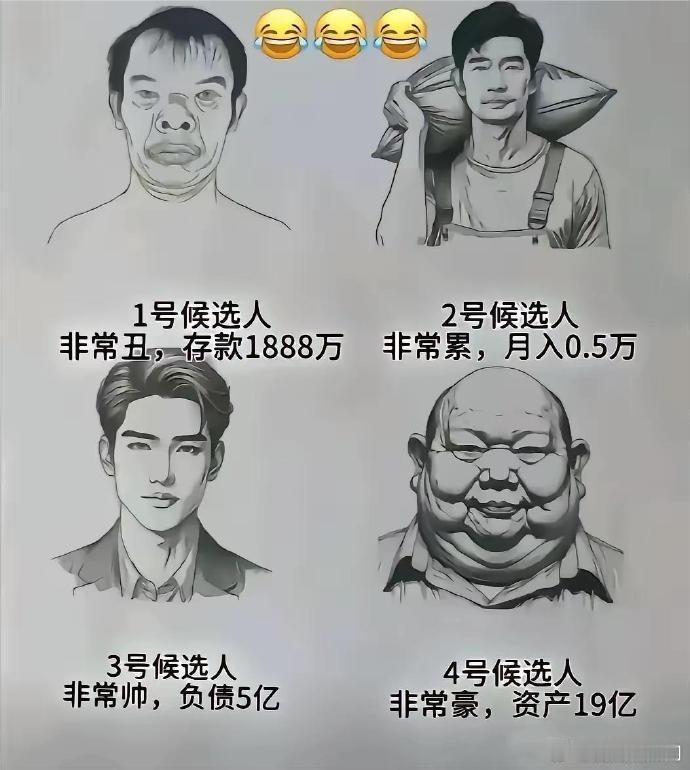 1号候选人
非常丑，存款1888万
2号候选人
非常累，月入0.5万
3号候选人
非常帅，负债5亿
4号候选人
非常豪，资产19亿